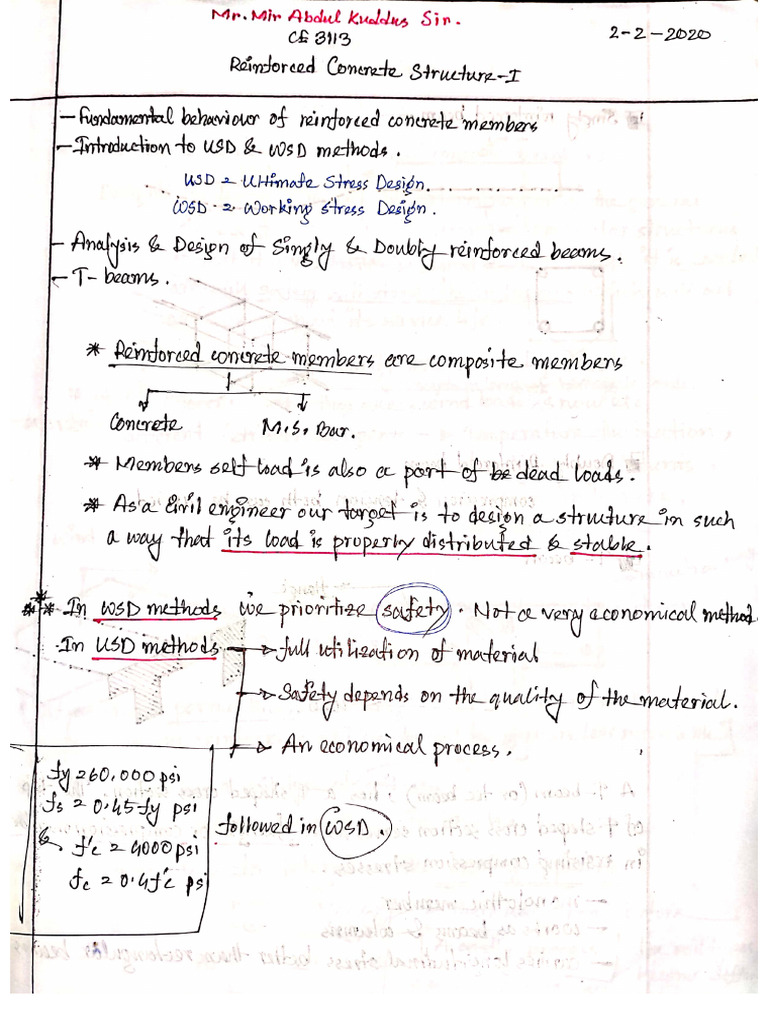 Mr. Mir Abdul Kuddus Sir.
CE 3113
2-2-2020
Reinforced Concrete Structure-I
- Fundamental behaviour of reinforced concrete members
- Introduction to USD & WSD methods.
USD = Ultimate Stress Design.
WSD = Working Stress Design.
- Analysis & Design of Singly & Doubly reinforced beams.
- T-beams.
* Reinforced concrete members are composite members
Concrete M.S. Bar.
* Members self load is also a part of be dead loads.
* As a Civil engineer our target is to design a struture in such
a way that its load is properly distributed & stable.
** In WSD methods we prioritize safety. Not a very economical method.
In USD methods → full utilization of material
→ Safety depends on the quality of the material.
→ An economical process.
fy = 60,000 psi
fs = 0.45fy psi
& f'c = 4000 psi
fc = 0.4f'c psi
followed in WSD.